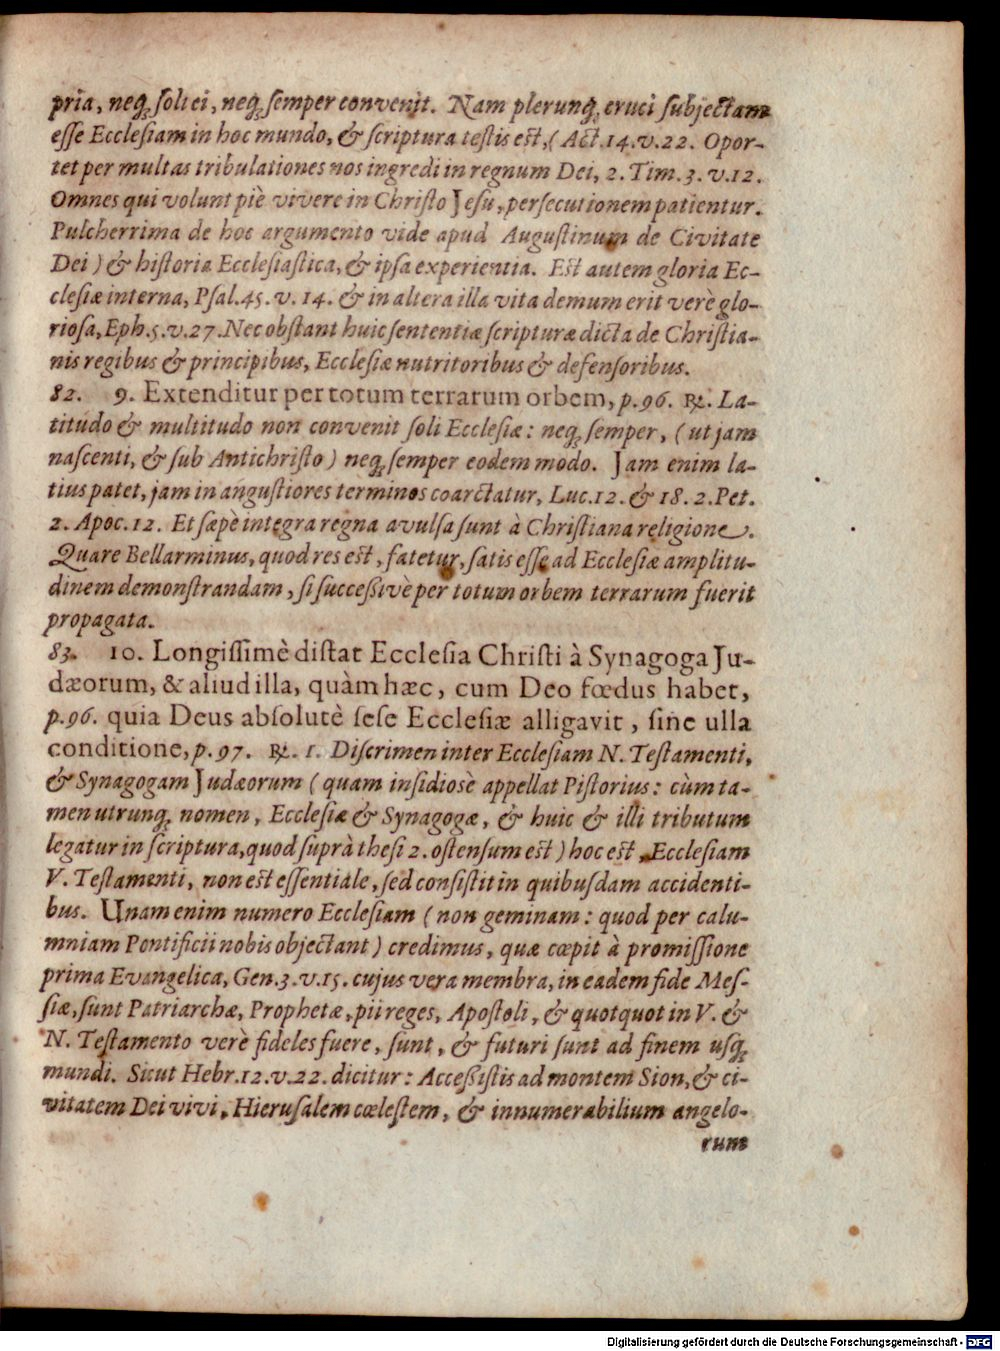 pria, neq; soli ei, neq; semper convenit. Nam plerunq; cruci subjectam
esse Ecclesiam in hoc mundo, & scriptura testis est, (Act. 14. v. 22. Opor-
tet per multas tribulationes nos ingredi in regnum Dei, 2. Tim. 3. v. 12.
Omnes qui volunt piè vivere in Christo Jesu, persecutionem patientur.
Pulcherrima de hoc argumento vide apud Augustinum de Civitate
Dei) & historia Ecclesiastica, & ipsa experientia. Est autem gloria Ec-
clesiæ interna, Psal. 45. v. 14. & in altera illa vita demum erit verè glo-
riosa, Eph. 5. v. 27. Nec obstant huic sententiæ scripturæ dicta de Christia-
nis regibus & principibus, Ecclesiæ nutritoribus & defensoribus.
82. 9. Extenditur per totum terrarum orbem, p. 96. ℞. La-
titudo & multitudo non convenit soli Ecclesiæ: neq; semper, (ut jam
nascenti, & sub Antichristo) neq; semper eodem modo. Jam enim la-
tius patet, jam in angustiores terminos coarctatur, Luc. 12. & 18. 2. Pet.
2. Apoc. 12. Et sæpè integra regna avulsa sunt à Christiana religione.
Quare Bellarminus, quod res est, fatetur, satis esse ad Ecclesiæ amplitu-
dinem demonstrandam, si successivè per totum orbem terrarum fuerit
propagata.
83. 10. Longissimè distat Ecclesia Christi à Synagoga Ju-
dæorum, & aliud illa, quàm hæc, cum Deo fœdus habet,
p. 96. quia Deus absolutè sese Ecclesiæ alligavit, sine ulla
conditione, p. 97. ℞. 1. Discrimen inter Ecclesiam N. Testamenti,
& Synagogam Judæorum (quam insidiosè appellat Pistorius: cùm ta-
men utrunq; nomen, Ecclesiæ & Synagogæ, & huic & illi tributum
legatur in scriptura, quod suprà thesi 2. ostensum est) hoc est, Ecclesiam
V. Testamenti, non est essentiale, sed consistit in quibusdam accidenti-
bus. Unam enim numero Ecclesiam (non geminam: quod per calu-
mniam Pontificii nobis objectant) credimus, quæ cœpit à promissione
prima Evangelica, Gen. 3. v. 15. cujus vera membra, in eadem fide Mes-
siæ, sunt Patriarchæ, Prophetæ, pii reges, Apostoli, & quotquot in V. &
N. Testamento verè fideles fuere, sunt, & futuri sunt ad finem usq;
mundi. Sicut Hebr. 12. v. 22. dicitur: Accessistis ad montem Sion, & ci-
vitatem Dei vivi, Hierusalem cœlestem, & innumerabilium angelo-
rum
Digitalisierung gefördert durch die Deutsche Forschungsgemeinschaft - DFG